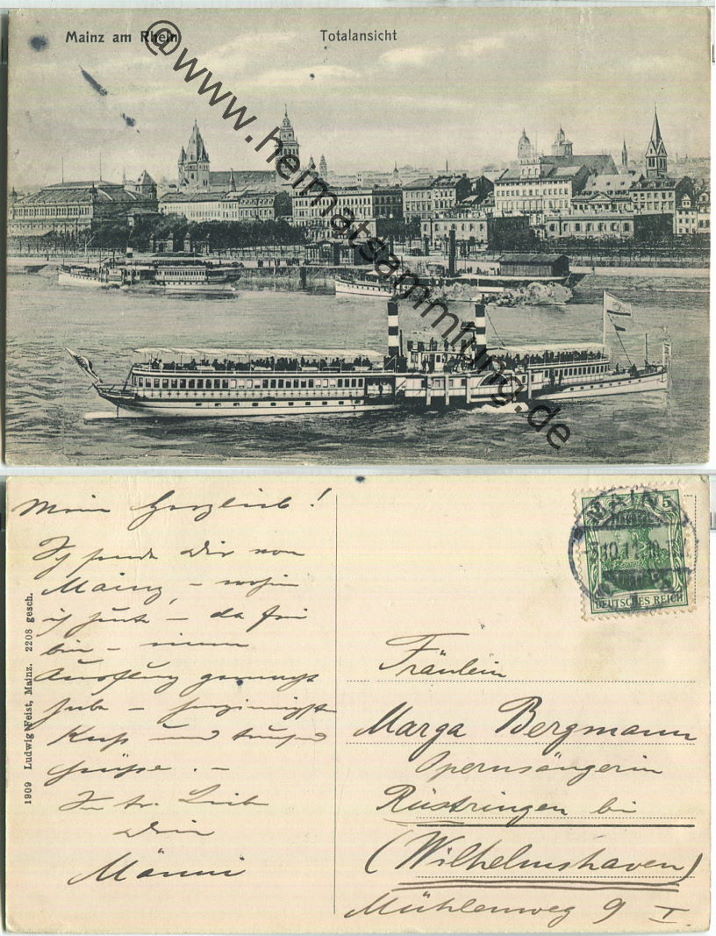 Mainz am Rhein
Totalansicht
@www.heimatsammlung.de
Mein Herzlieb!
Ich sende Dir von
Mainz, – wohin
ich heute – da frei
bin – einen
Ausflug gemacht
habe – herzinnigste
Kuss und tausend
Grüsse. –
In tr. Liebe
Dein
Männi
1909 Ludwig Feist, Mainz. 2208 gesch.
MAINZ
5
DEUTSCHES REICH
Fräulein
Marga Bergmann
Opernsängerin
Rüstringen bei
(Wilhelmshaven)
Mühlenweg 9 I.